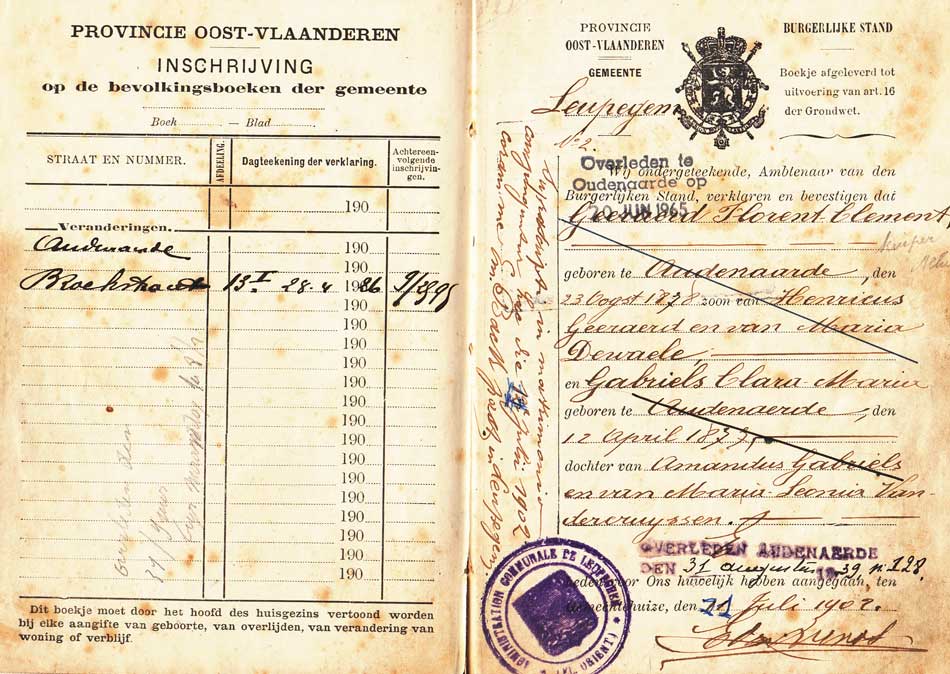 PROVINCIE OOST-VLAANDEREN
INSCHRIJVING
op de bevolkingsboeken der gemeente
Boek — Blad
STRAAT EN NUMMER.
AFDEELING.
Dagteekening der verklaring.
Achtereen-
volgende
inschrijvin-
gen.
190
Veranderingen.
Audenaarde 190
190
13 28-4 1986
190
190
190
190
190
190
190
190
190
190
190
190
190
190
190
overleden den
Dit boekje moet door het hoofd des huisgezins vertoond worden
bij elke aangifte van geboorte, van overlijden, van verandering van
woning of verblijf.
PROVINCIE
OOST-VLAANDEREN
GEMEENTE
Leupegem
N° 2.
BURGERLIJKE STAND
Boekje afgeleverd tot
uitvoering van art. 16
der Grondwet.
Overleden te
Oudenaarde op
20 JUN 1965
Wij ondergeteekende, Ambtenaar van den
Burgerlijken Stand, verklaren en bevestigen dat
Geeraerd Florent Clement,
kuiper
geboren te Audenaarde, den
23 Oogst 1878 zoon van Henricus
Geeraerd en van Maria
Dewaele,
en Gabriels Clara-Maria
geboren te Audenaerde, den
12 April 1877,
dochter van Amandus Gabriels
en van Maria-Leonia Van-
dercruyssen.
OVERLEDEN AUDENAERDE
DEN 31 augustus 1939 n° 128.
heden voor Ons huwelijk hebben aangegaan, ten
Gemeentehuize, den 21 Juli 1902.
in matrimonio
die juli 1902
ADMINISTRATION COMMUNALE DE LEUPEGEM
(FL. ORIENT.)